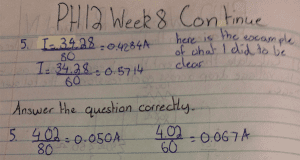 PH12 Week 8 Continue
5. I = 34.28 = 0.4284A here is the example
80 of what I did to be
I = 34.28 = 0.5714 clear
60
Answer the question correctly.
5. 4.02 = 0.050A 4.02 = 0.067A
80 60